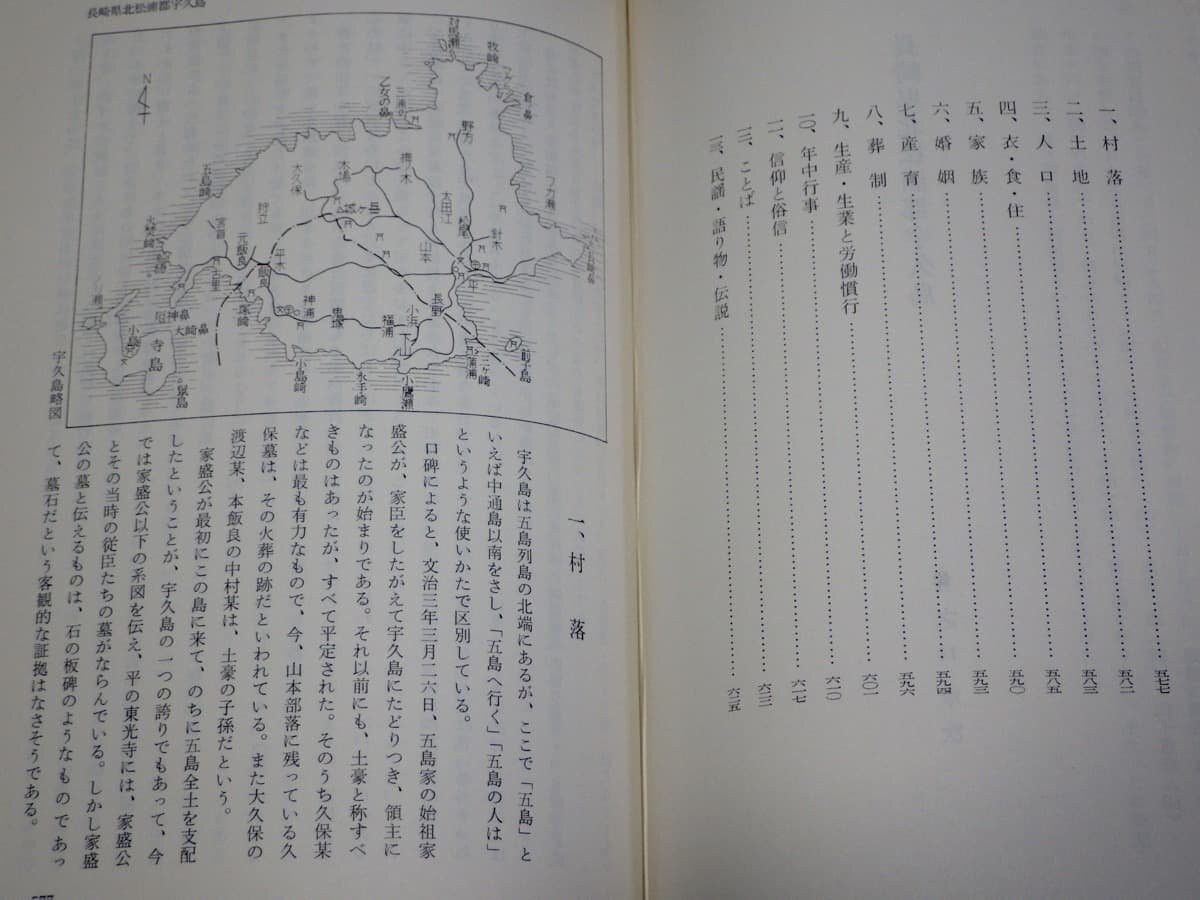 一、村落……五七七
二、土地……五八二
三、人口……五八三
四、衣・食・住……五八五
五、家族……五九〇
六、婚姻……五九三
七、産育……五九四
八、葬制……五九六
九、生産・生業と労働慣行……六〇一
一〇、年中行事……六一〇
一一、信仰と俗信……六一七
一二、ことば……六三二
一三、民謡・語り物・伝説……六三五
長崎県北松浦郡宇久島
N
対馬瀬
牧崎
倉ヶ鼻
乙女の鼻
三浦
野方
フカ瀬
五島崎
大久保
木場
梅ノ木
太田江
城ヶ岳
松尾
針木
狩立
山本
平
宮首
元飯良
平木
飯良
古里
神浦
鬼塚
福浦
小浜
長野
前小島
厄神鼻
大崎鼻
小島崎
水手崎
小鷹瀬
寺島
鼠島
宇久島略図
一、村落
宇久島は五島列島の北端にあるが、ここで「五島」と
いえば中通島以南をさし、「五島へ行く」「五島の人は」
というような使いかたで区別している。
口碑によると、文治三年三月二六日、五島家の始祖家
盛公が、家臣をしたがえて宇久島にたどりつき、領主に
なったのが始まりである。それ以前にも、土豪と称すべ
きものはあったが、すべて平定された。そのうち久保某
などは最も有力なもので、今、山本部落に残っている久
保墓は、その火葬の跡だといわれている。また大久保の
渡辺某、本飯良の中村某は、土豪の子孫だという。
家盛公が最初にこの島に来て、のちに五島全土を支配
したということが、宇久島の一つの誇りでもあって、今
では家盛公以下の系図を伝え、平の東光寺には、家盛公
とその当時の従臣たちの墓がならんでいる。しかし家盛
公の墓と伝えるものは、石の板碑のようなものであっ
て、墓石だという客観的な証拠はなさそうである。
577